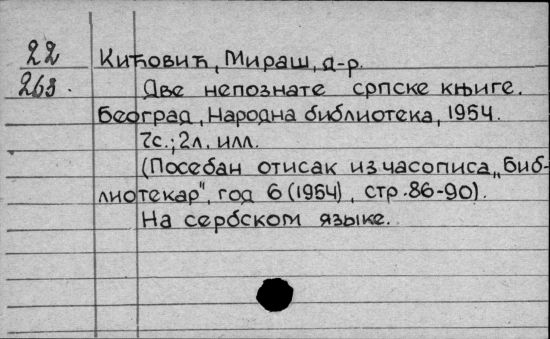 22 Кићовић, Мираш, д-р.
263. Две непознате српске књиге.
Београд, Народна библиотека, 1954.
7с.; 2л. илл.
(Посебан отисак из часописа „Биб-
лиотекар", год 6 (1954), стр. 86-90).
На сербском языке.